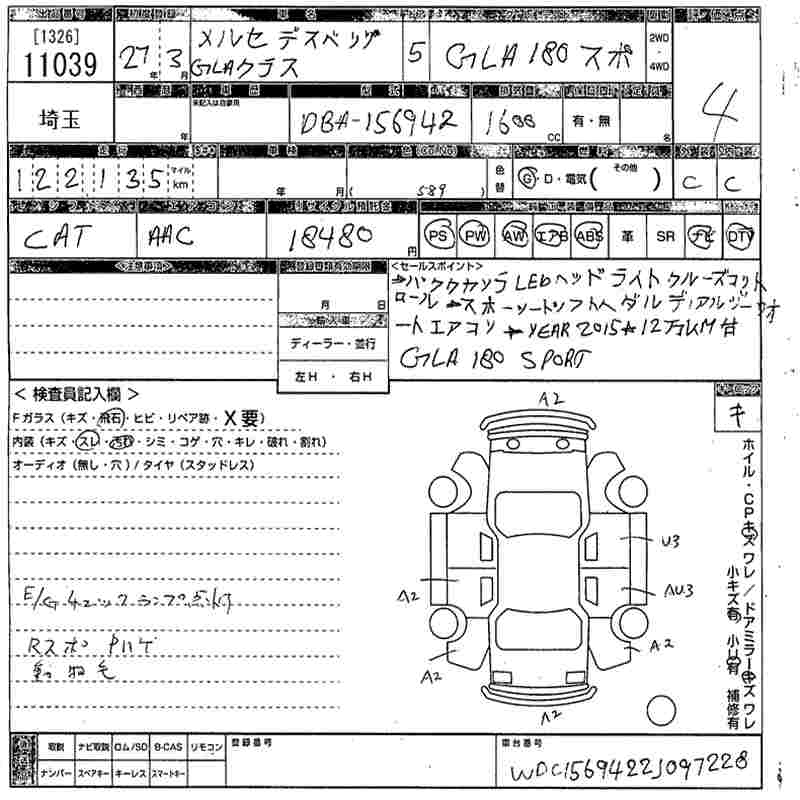 [1326]
11039
27年 3月
メルセデスベンツ
GLAクラス
5
GLA 180 スポ
2WD
・
4WD
4
埼玉
年
未記入は自家用
DBA-156942
1600 CC
有・無
名
122135 マイル km
年 月 (589)
色替
G・D・電気( その他 )
C C
CAT
AAC
18480 円
PS PW AW エアB ABS 革 SR ナビ DTV
<注意事項>
登録書類有効期限
月 日
輸入車
ディーラー・並行
左H ・ 右H
<セールスポイント>
バックカメラ LEDヘッドライト クルーズコント
ロール
ートエアコン YEAR 2015 12万KM付
GLA 180 SPORT
<検査員記入欄>
Fガラス(キズ・飛石・ヒビ・リペア跡・X要)
内装(キズ・スレ・汚れ・シミ・コゲ・穴・キレ・破れ・割れ)
オーディオ(無し・穴)/タイヤ(スタッドレス)
E/Gチェックランプ点灯
Rスポ Pハゲ
動物毛
A2
U3
A2
AU3
A2
A2
A2
キ
ホイル・CPキズ ワレ/ドアミラーキズ ワレ
小キズ有 小凹有 補修有
取説 ナビ取説 ロム/SD B-CAS リモコン
ナンバー スペアキー キーレス スマートキー
登録番号
車台番号
WDC1569422J097228